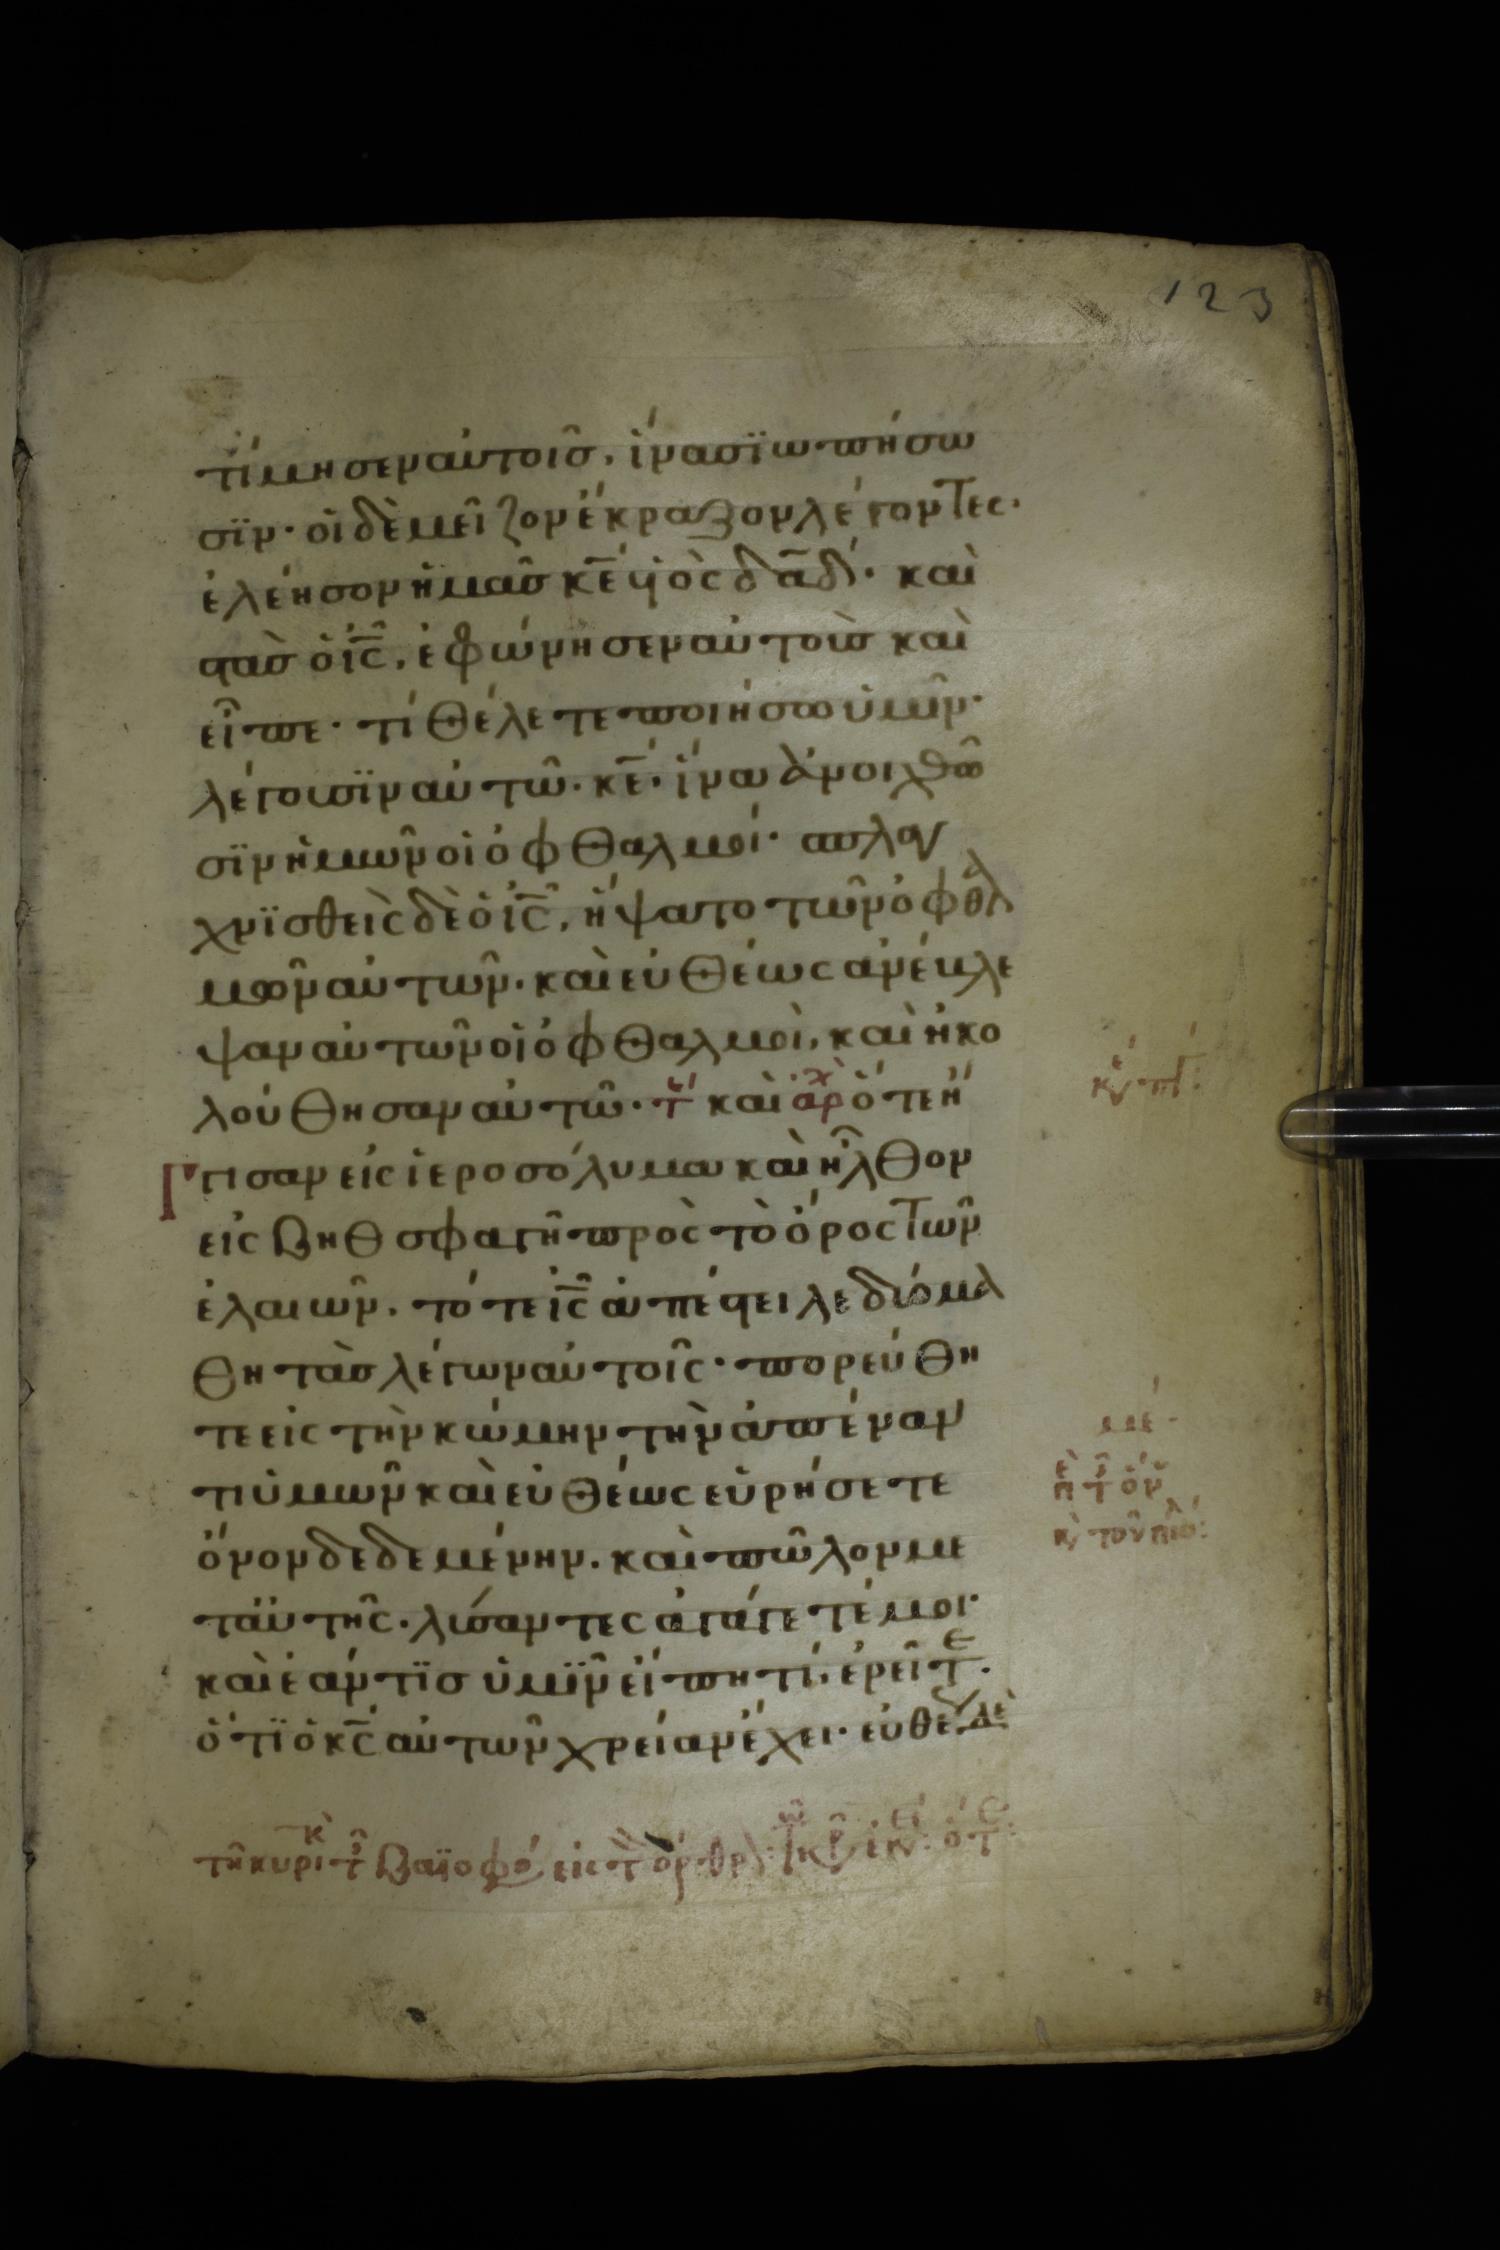 123
τίμησεν αὐτοῖσ, ἵνα σϊωπήσω
σϊν· οἱ δὲ μεῖζον ἔκραζον λέγοντες·
ἐλέησον ἡμᾶσ κ̅ε̅ υἱὸς δα̅δ· καὶ
στὰσ ὁ ι̅ς̅, ἐφώνησεν αὐτοὺσ καὶ
εἶπε· τί θέλετε ποιήσω ὑμῖν·
λέγουσϊν αὐτῶ· κ̅ε̅· ἵνα ἀνοιχθῶ
σϊν ἡμῶν οἱ ὀφθαλμοί· σπλαγ
χνϊσθεὶς δὲ ὁ ι̅ς̅, ἥψατο τῶν ὀφθαλ
μῶν αὐτῶν· καὶ εὐθέως ἀνέβλε
ψαν αὐτῶν οἱ ὀφθαλμοὶ, καὶ ἠκο
λούθησαν αὐτῶ· τέ καὶ ἀρχ ὅτε ἤ
γγισαν εἰς ἱεροσόλυμα καὶ ἦλθον
εἰς βηθσφαγῆ πρὸς τὸ ὄρος τῶν
ἐλαιῶν. τότε ι̅ς̅ ἀπέστειλε δύο μα
θητὰσ λέγων αὐτοῖς· πορεύθη
τε εἰς τὴν κώμην τὴν ἀπέναν
τι ὑμῶν καὶ εὐθέως εὑρήσετε
ὄνον δεδεμένην. καὶ πῶλον με
τ᾽ αὐτῆς. λύσαντες ἀγάγετέ μοι·
καὶ ἐάν τϊσ ὑμῖν εἴπη τί, ἐρεῖτε.
ὅτϊ ὁ κ̅ς̅ αὐτῶν χρείαν ἔχει· εὐθέως δὲ
με·